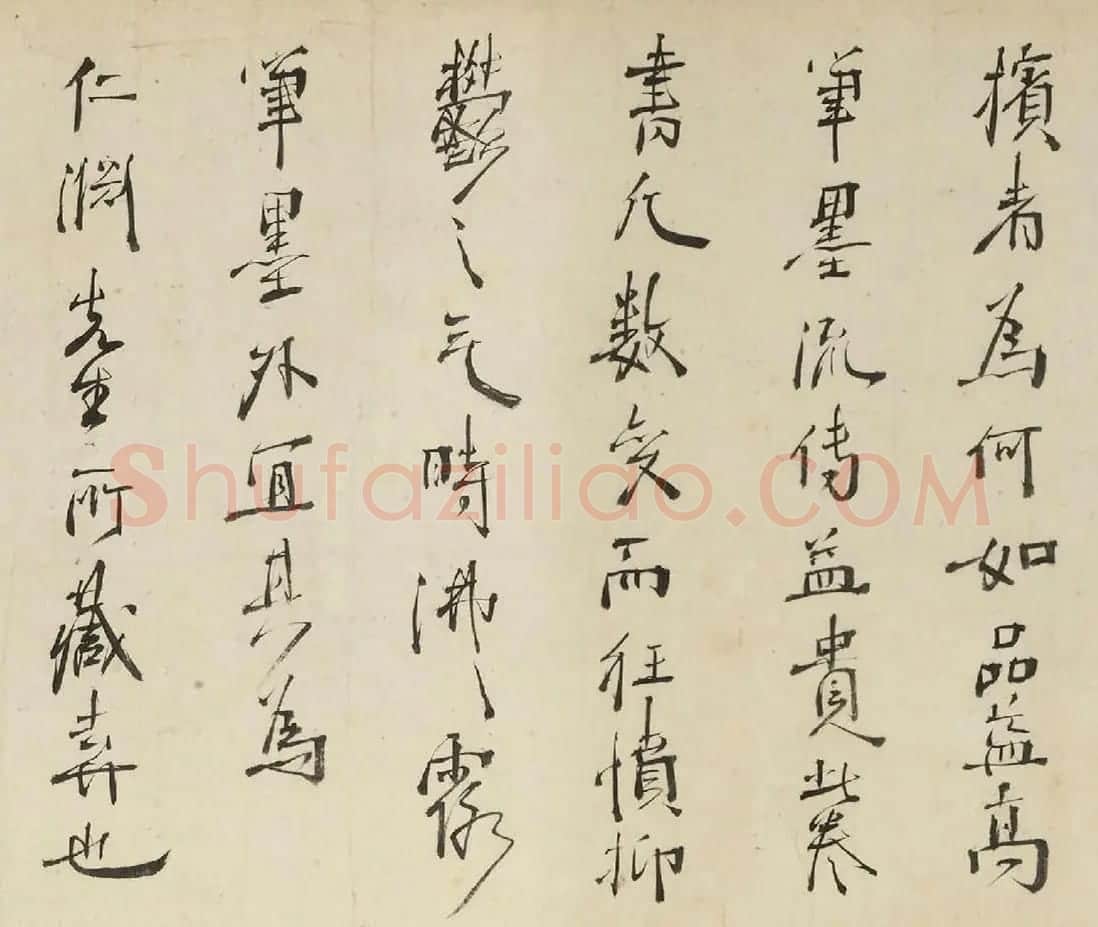 擯者為何如品益高
筆墨流傳益貴此卷
書凡數變而狂憤抑
鬱之氣時沸沸露
筆墨外宜其為
仁淵先生所藏弆也
Shufaziliao.COM